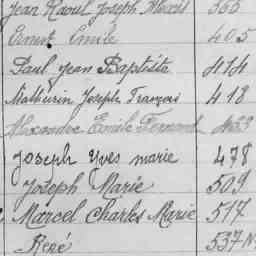 Jean Raoul Joseph Marcel 366
Ernest Emile 405
Paul Jean Baptiste 414
Mathurin Joseph François 418
Alexandre Emile Fernand 423
Joseph Yves marie 478
Joseph Marie 509
Marcel Charles Marie 517
René 537 N